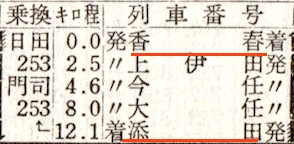 乗換 キロ程 列車番号
日田 0.0 発香春着
253 2.5 〃上伊田発
門司 4.6 〃今任〃
253 8.0 〃大任〃
12.1 着添田発